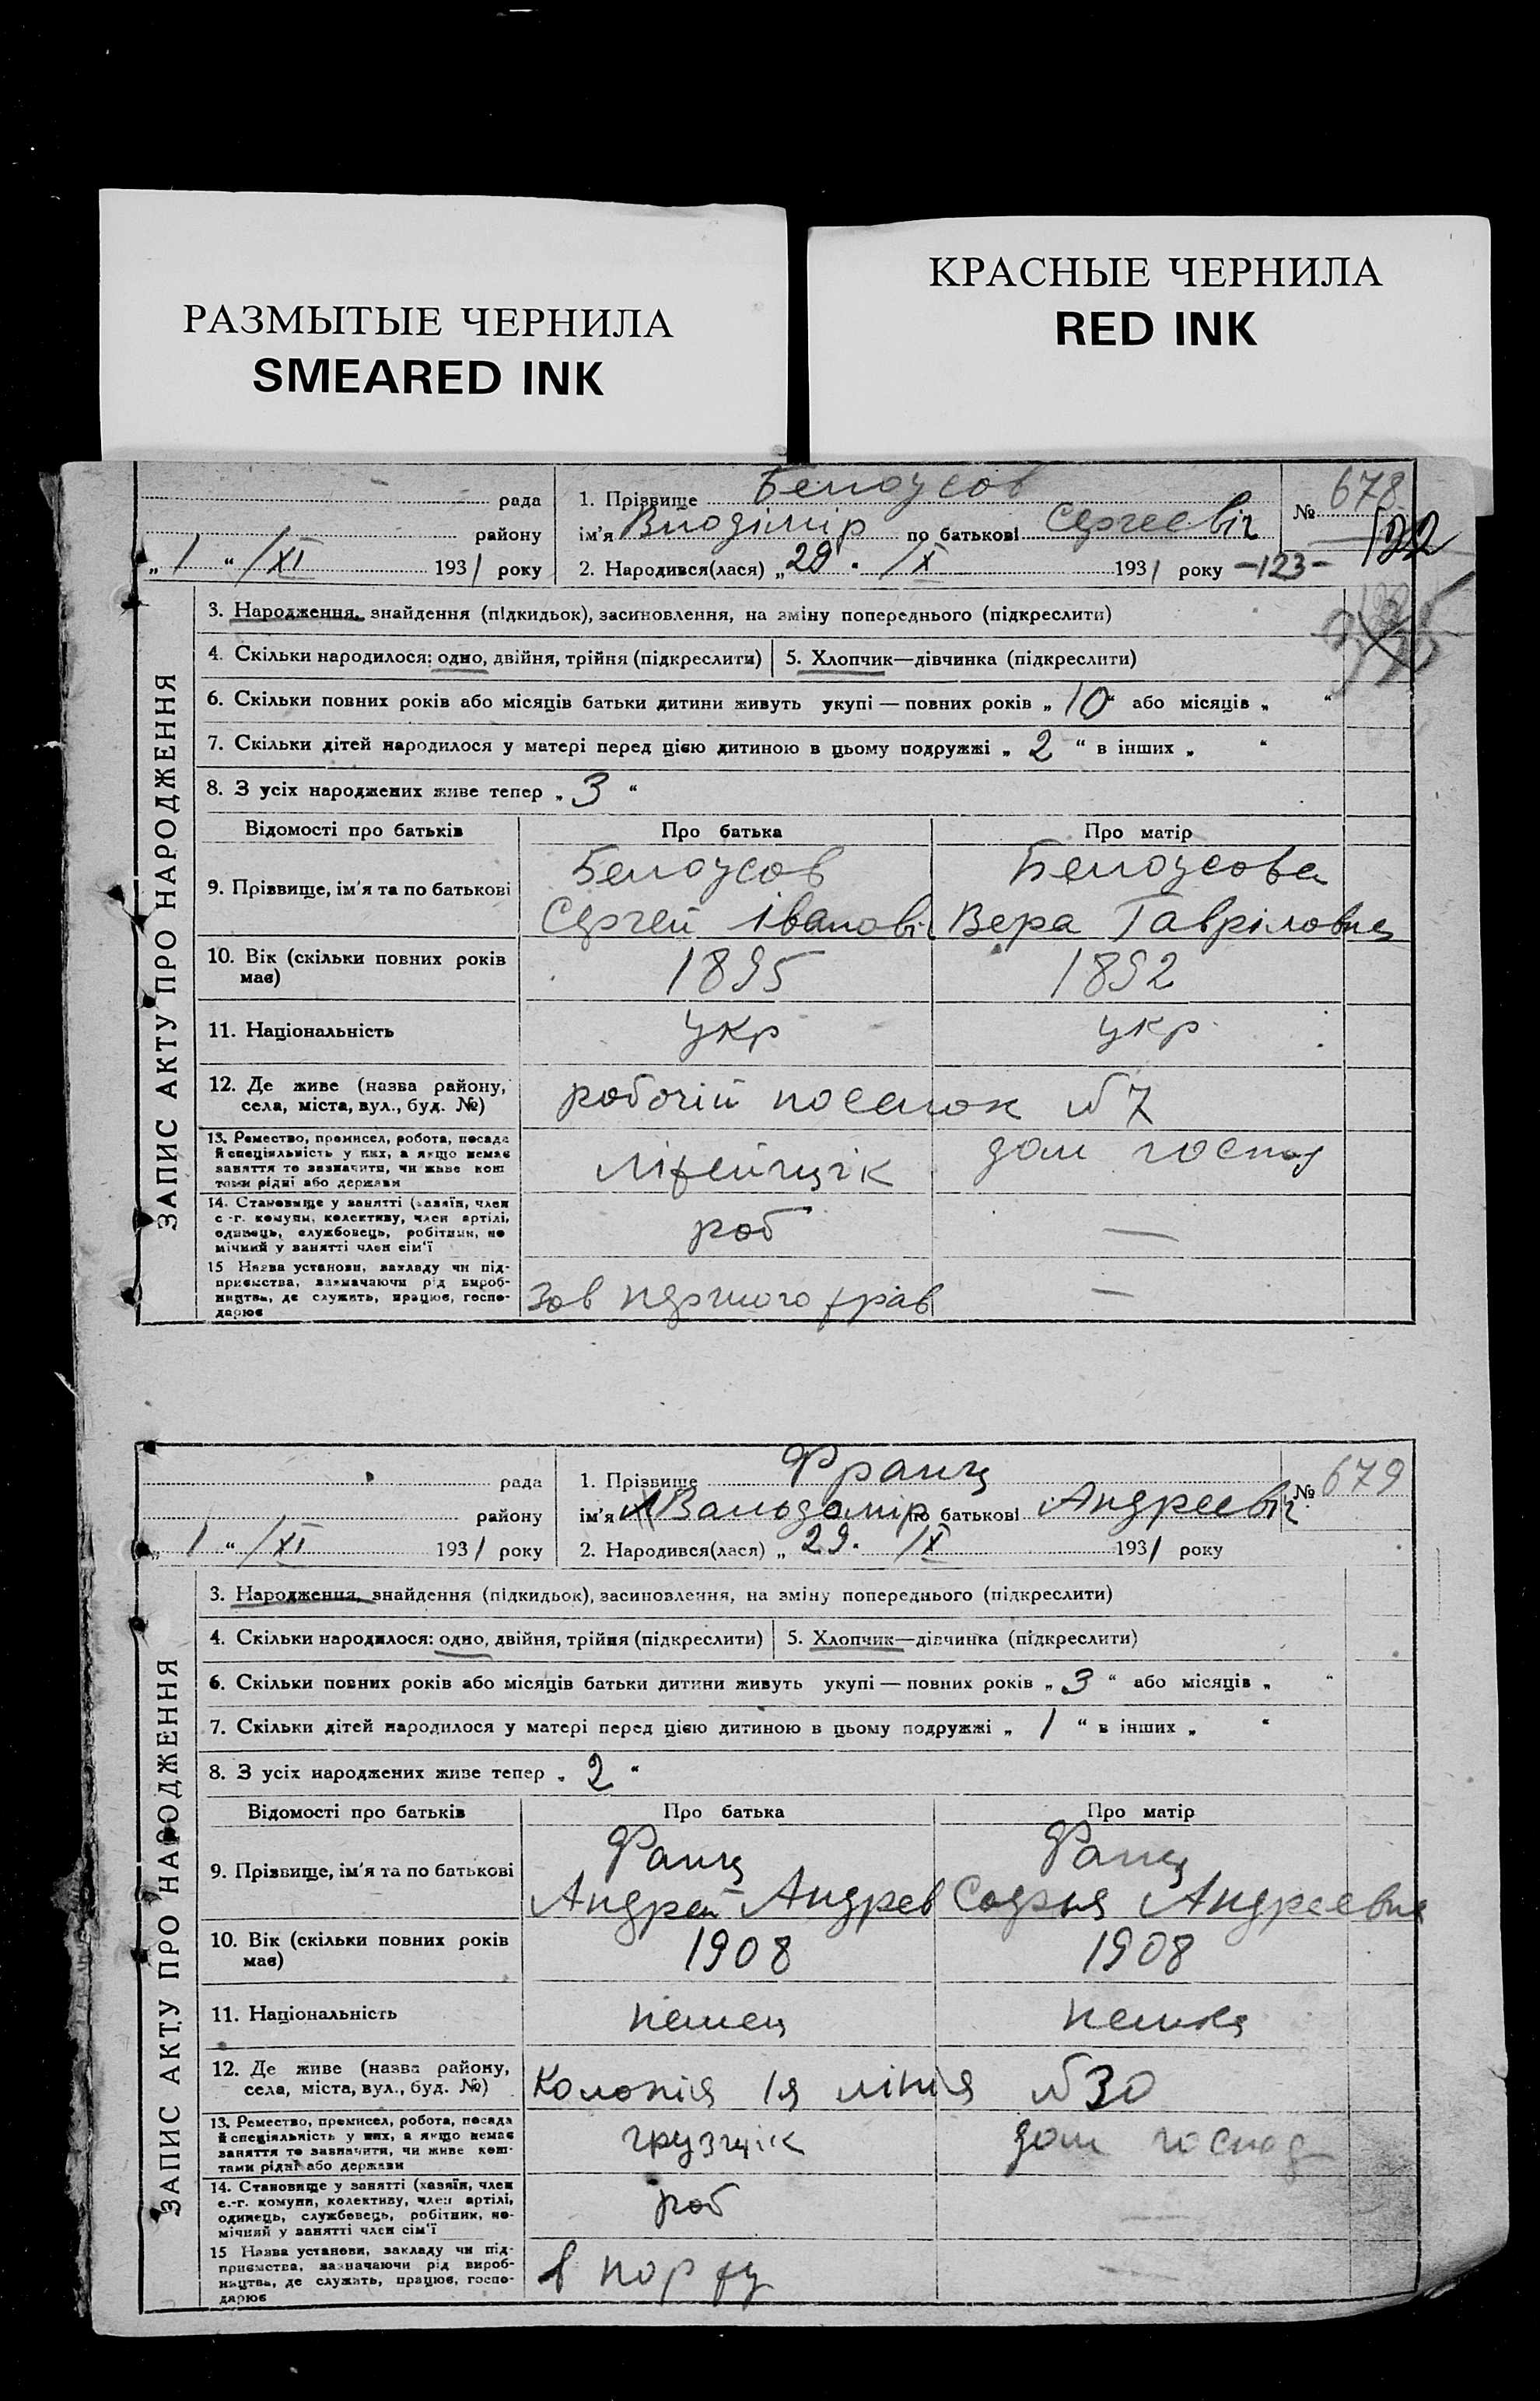 РАЗМЫТЫЕ ЧЕРНИЛА
SMEARED INK
КРАСНЫЕ ЧЕРНИЛА
RED INK
рада
1. Прізвище Белоусов
№ 678
району
ім'я Володімір по батькові Сергеевіч
122
„ 1 “ /XI 1931 року
2. Народився(лася) „ 29 . /X 1931 року -123-
ЗАПИС АКТУ ПРО НАРОДЖЕННЯ
3. Народження, знайдення (підкидьок), засиновлення, на зміну попереднього (підкреслити)
4. Скільки народилося: одно, двійня, трійня (підкреслити)
5. Хлопчик—дівчинка (підкреслити)
6. Скільки повних років або місяців батьки дитини живуть укупі — повних років „ 10 “ або місяців „ “
7. Скільки дітей народилося у матері перед цією дитиною в цьому подружжі „ 2 “ в інших „ “
8. З усіх народжених живе тепер „ 3 “
Відомості про батьків
Про батька
Про матір
9. Прізвище, ім'я та по батькові
Белоусов
Сергей Іванові
Белоусова
Вера Гавріловна
10. Вік (скільки повних років
має)
1895
1892
11. Національність
укр
укр
12. Де живе (назва району,
села, міста, вул., буд. №)
робочій поселок №7
13. Ремество, промисел, робота, посада
й спеціяльність у них, а якщо немає
заняття то зазначити, чи живе кош
тами рідні або держави
літейщік
дом госпо
14. Становище у занятті (хазяїн, член
с.-г. комуни, колективу, член артілі,
одинець, службовець, робітник, по
мічний у занятті член сім'ї
роб
—
15 Назва установи, закладу чи під-
приємства, зазначаючи рід вироб-
ництва, де служить, працює, госпо-
дарює
Зав першого трав
—
рада
1. Прізвище Франц
№ 679
району
ім'я Валодомір по батькові Андреевіч
„ 1 “ /XI 1931 року
2. Народився(лася) „ 29. /X 1931 року
ЗАПИС АКТУ ПРО НАРОДЖЕННЯ
3. Народження, знайдення (підкидьок), засиновлення, на зміну попереднього (підкреслити)
4. Скільки народилося: одно, двійня, трійня (підкреслити)
5. Хлопчик—дівчинка (підкреслити)
6. Скільки повних років або місяців батьки дитини живуть укупі — повних років „ 3 “ або місяців „ “
7. Скільки дітей народилося у матері перед цією дитиною в цьому подружжі „ 1 “ в інших „ “
8. З усіх народжених живе тепер „ 2 “
Відомості про батьків
Про батька
Про матір
9. Прізвище, ім'я та по батькові
Фанц
Андрей Андрев
Фанц
Софья Андреевна
10. Вік (скільки повних років
має)
1908
1908
11. Національність
немец
немка
12. Де живе (назва району,
села, міста, вул., буд. №)
Колонія 1я лінія №30
13. Ремество, промисел, робота, посада
й спеціяльність у них, а якщо немає
заняття то зазначити, чи живе кош-
тами рідні або держави
грузчік
дом господ
14. Становище у занятті (хазяїн, член
с.-г. комуни, колективу, член артілі,
одинець, службовець, робітник, по-
мічний у занятті член сім'ї
роб
15 Назва установи, закладу чи під-
приємства, зазначаючи рід вироб-
ництва, де служить, працює, госпо-
дарює
в порту